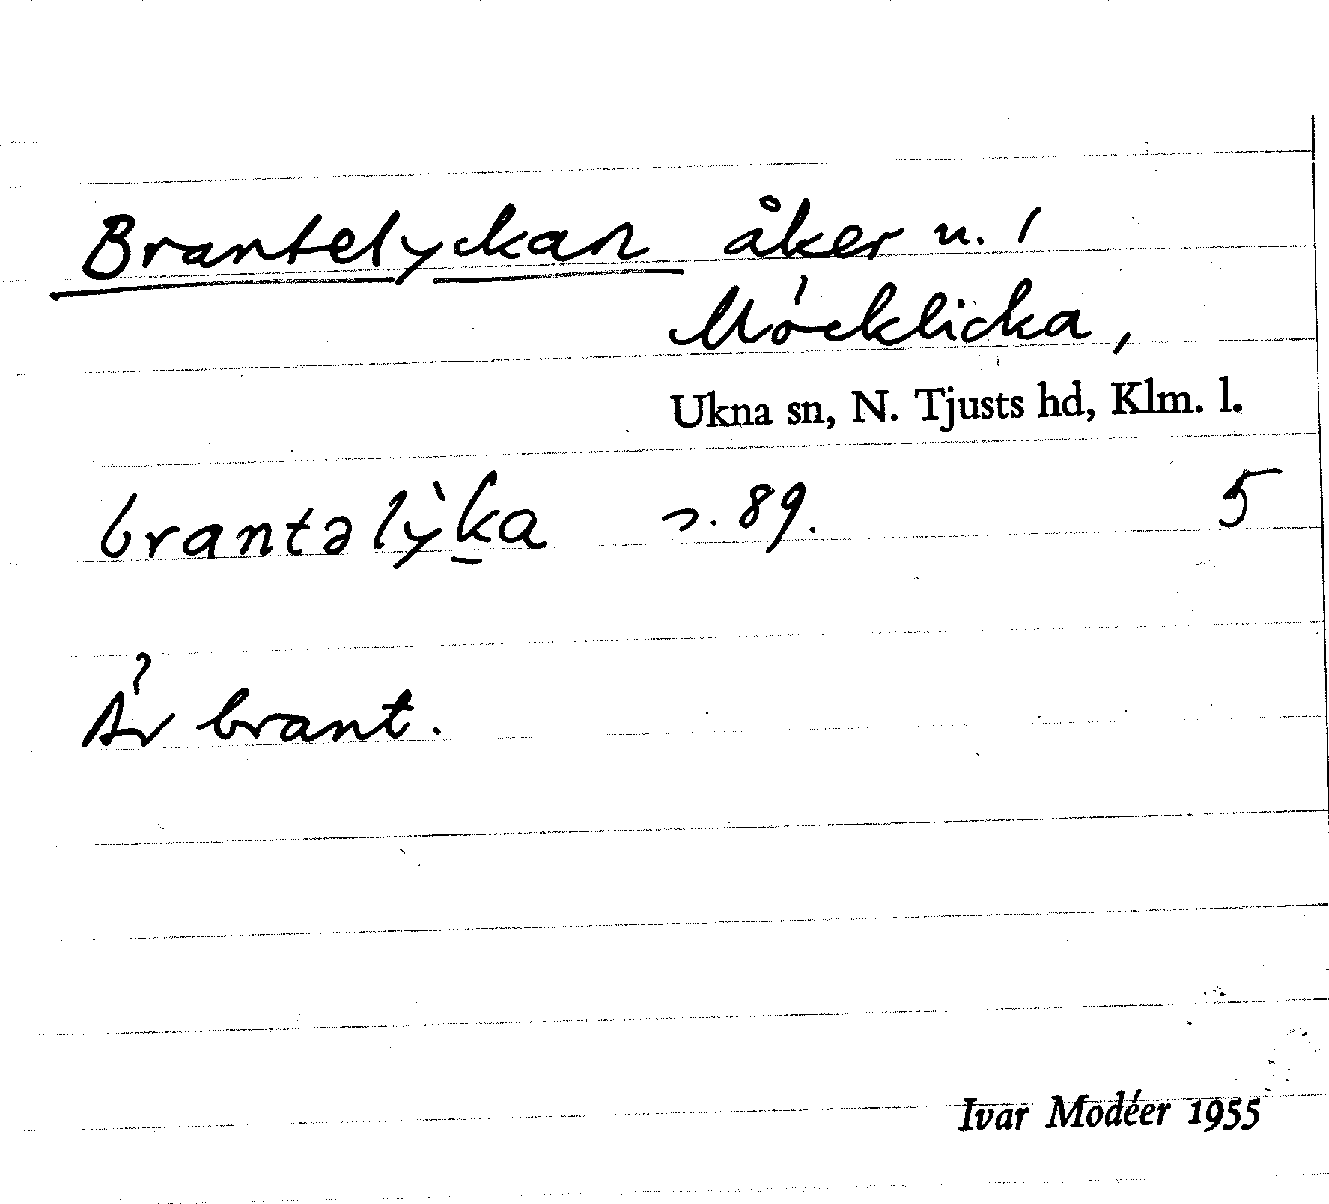 Brantelyckan åker u. 1
Möcklicka,
Ukna sn, N. Tjusts hd, Klm. l.
brantəlỳḵa s. 89. 5
Är brant.
Ivar Modéer 1955